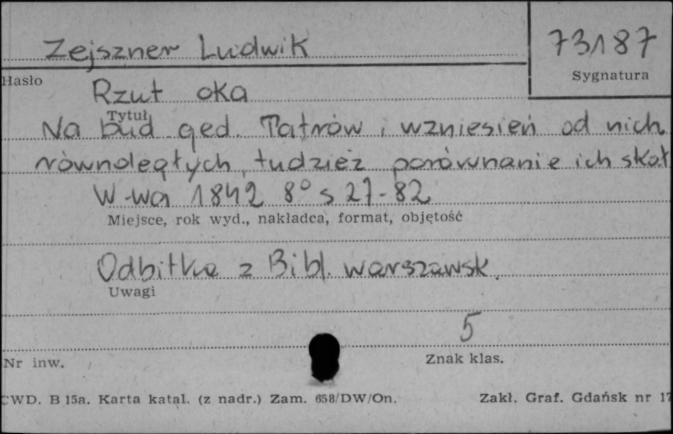 Zejszner Ludwik
73187
Hasło
Sygnatura
Rzut oka
Tytuł
Na bud ged. Tatrów i wzniesień od nich
równoległych, tudzież porównanie ich skał
W-wa 1842 8° s 27-82
Miejsce, rok wyd., nakładca, format, objętość
Odbitka z Bibl. warszawsk.
Uwagi
5
Nr inw.
Znak klas.
CWD. B 15a. Karta katal. (z nadr.) Zam. 658/DW/On.
Zakł. Graf. Gdańsk nr 17